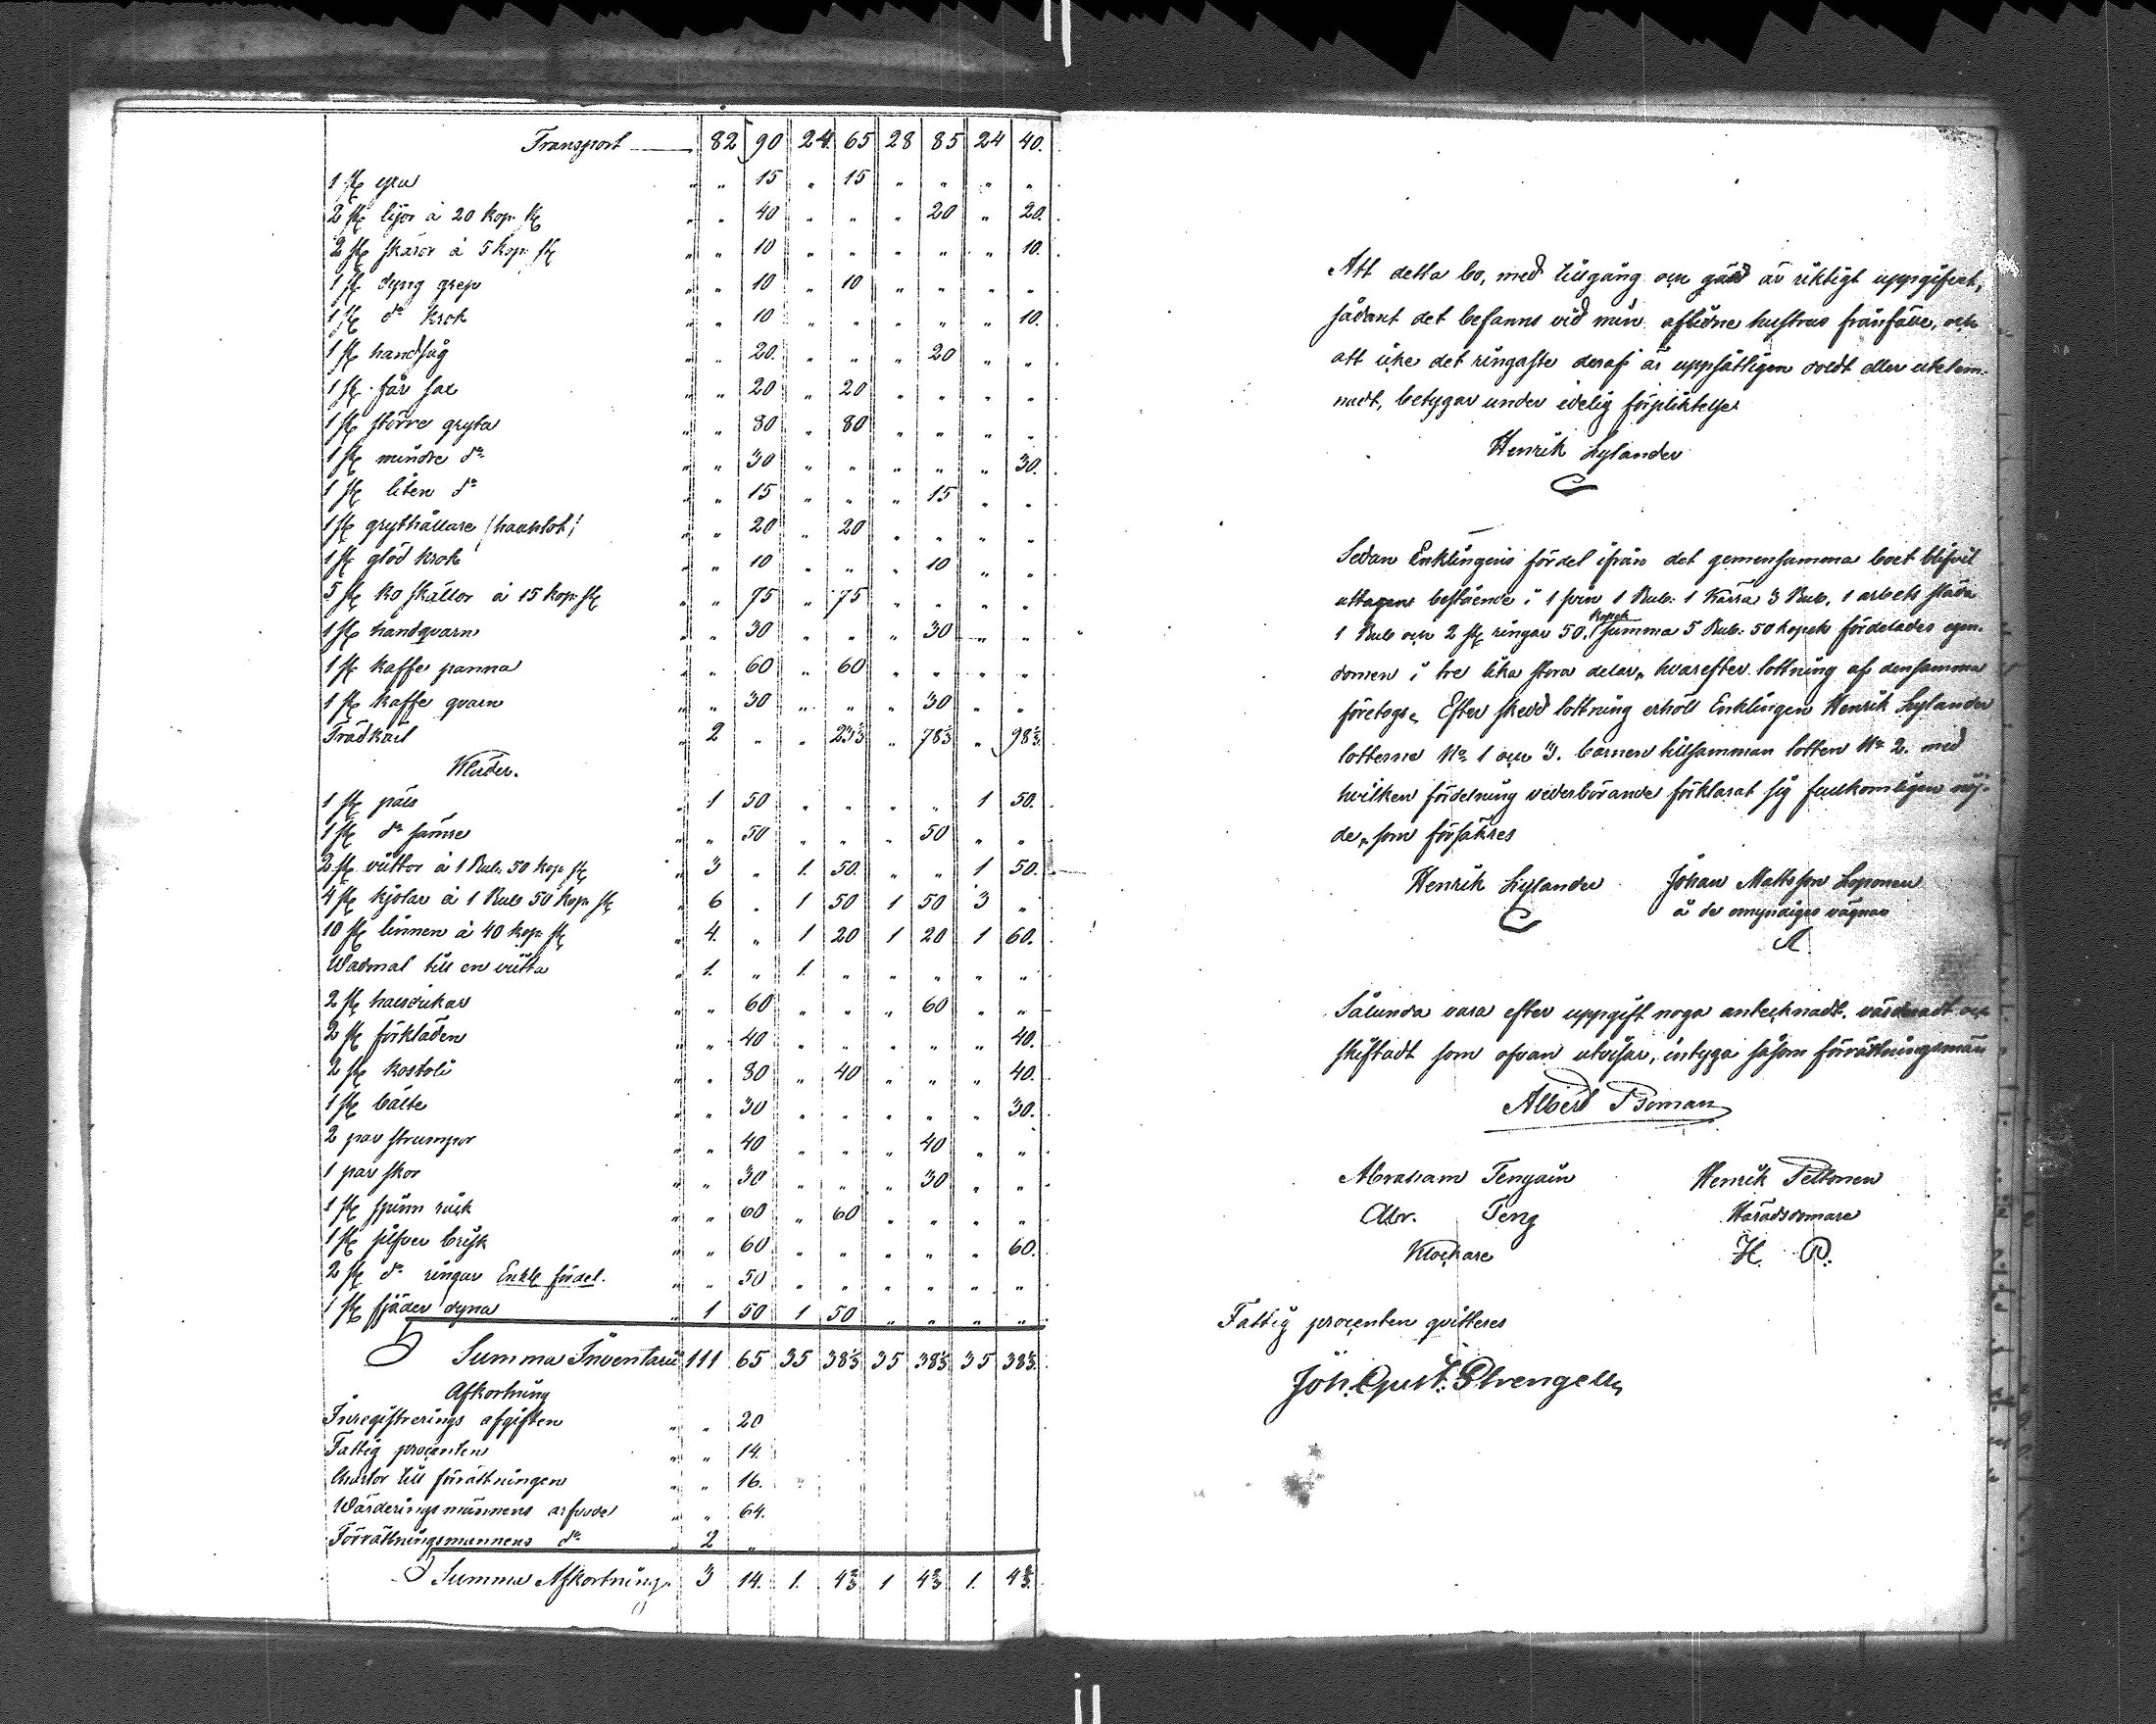 Transport — 82 90 24 65 28 85 24 40.
1 st yxa „ „ 15 „ 15 „ „ „ „
2 st lijor à 20 kop. st „ „ 40 „ „ „ 20 „ 20.
2 st skäror à 5 kop. st „ „ 10 „ „ „ „ „ 10.
1 st dyng grep „ „ 10 „ 10 „ „ „ „
1 st do krok „ „ 10 „ „ „ „ „ 10.
1 st handsåg „ „ 20. „ „ „ 20 „ „
1 st får sax „ „ 20 „ 20 „ „ „ „
1 st större gryta „ „ 80 „ 80 „ „ „ „
1 st mindre do „ „ 30 „ „ „ „ „ 30.
1 st liten do „ „ 15 „ „ „ 15 „ „
1 st grythållare /haahlot/ „ „ 20 „ 20 „ „ „ „
1 st glöd krok „ „ 10 „ „ „ 10 „ „
5 st ko skällor à 15 kop. st „ „ 75 „ 75 „ „ „ „
1 st handqvarn „ „ 30 „ „ „ 30 „ „
1 st kaffe panna „ „ 60 „ 60 „ „ „ „
1 st kaffe qvarn „ „ 30 „ „ „ 30 „ „
Trädkäril „ 2 „ „ 23⅓ „ 78⅓ „ 98⅓
Kläder.
1 st päls „ 1 50 „ „ „ „ 1 50.
1 st do sämre „ „ 50 „ „ „ 50 „ „
2 st vüttor à 1 Rub. 50 kop. st „ 3 „ 1. 50. „ „ 1 50.
4 st kjolar à 1 Rub 50 kop. st „ 6 „ 1 50 1 50 3 „
10 st linnen à 40 kop. st „ 4. „ 1 20 1 20 1 60.
Wadmal till en vütta „ 1. „ 1. „ „ „ „ „
2 st halsdukar „ „ 60 „ „ „ 60 „ „
2 st förkläden „ „ 40 „ „ „ „ „ 40.
2 st kostoli „ „ 80 „ 40 „ „ „ 40.
1 st bälte „ „ 30 „ „ „ „ „ 30.
2 par strumpor „ „ 40 „ „ „ 40 „ „
1 par skor „ „ 30 „ „ „ 30 „ „
1 st spinn råck „ „ 60 „ 60 „ „ „ „
1 st silfver brisk „ „ 60 „ „ „ „ „ 60.
2 st do ringar Enkl. fördel. „ „ 50 „ „ „ „ „ „
1 st fjäder dyna „ 1 50 1 50 „ „ „ „
Summa Inventarii 111 65 35 38⅓ 35 38⅓ 35 38⅓
Afkortning
Inregistrerings afgiften „ „ 20
Fattig procenten „ „ 14.
Chartor till förrättningen „ „ 16.
Wärderingsmännens arfvode „ „ 64.
Förrättningsmannens do „ 2 „
Summa Afkortning. 3 14. 1. 4⅔ 1 4⅔ 1. 4⅔
Att detta bo, med tillgång och gäld är riktigt uppgifvet,
sådant det befanns vid min aflidne hustrus frånfälle, och
att icke det ringaste deraf är uppsåtligen doldt eller utelem-
nadt, betygar under edelig förpliktelse
Henrik Lylander
Sedan Enklingens fördel ifrån det gemensamma boet blifvit
uttagen bestående i 1 1 Rub. 1 Kärra 3 Rub. 1 arbets släda
1 Rub och 2 st ringar 50. Kopek Summa 5 Rub. 50 kopek fördelades egen-
domen i tre lika stora delar, hvarefter lottning af densamma
företogs. Efter skedd lottning erhöll Enklingen Henrik Lylander
lotterne No 1 och 3. barnen tillsamman lotten No 2. med
hvilken fördelning vederbörande förklarat sig fullkomligen nöj-
de, som försäkres
Henrik Lylander Johan Mattsson Loponen
å de omyndiges vägnar
Sålunda vara efter uppgift noga antecknadt, värderadt och
skiftadt som ofvan utvisar, intyga såsom förrättningsmän
Albert Boman
Abraham Tengain Henrik Peltonen
Abr. Teng Häradsdomare
Klockare H. P.
Fattig procenten qvitteres
Joh. Gust. Strengell